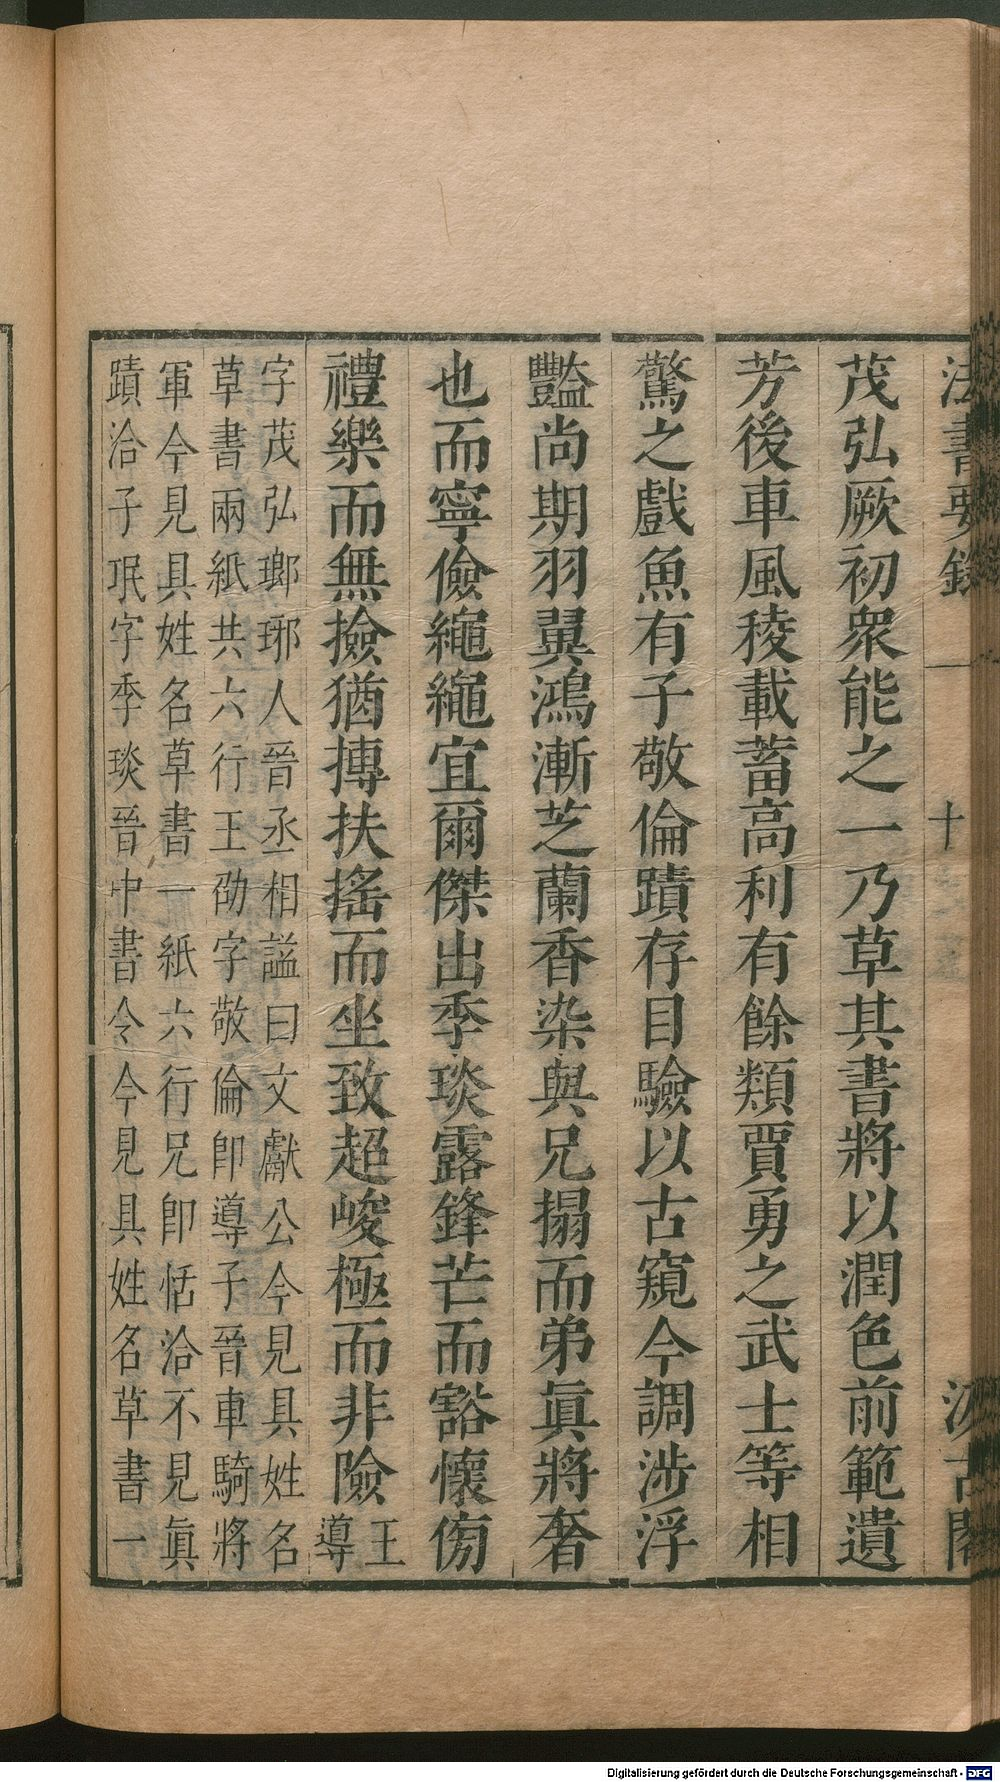 法書要錄 一 十 汲古閣
茂弘厥初衆能之一乃草其書將以潤色前範遺
芳後車風稜載蓄高利有餘類賈勇之武士等相
驚之戲魚有子敬倫蹟存目驗以古窺今調涉浮
豔尚期羽翼鴻漸芝蘭香染與兄搨而弟眞將奢
也而寧儉繩繩宜爾傑出季琰露鋒芒而豁懷傍
禮樂而無撿猶摶扶搖而坐致超峻極而非險王導
字茂弘瑯琊人晉丞相謚曰文獻公今見具姓名
草書兩紙共六行王劭字敬倫卽導子晉車騎將
軍今見具姓名草書一紙六行兄卽恬洽不見眞
蹟洽子珉字季琰晉中書令今見具姓名草書一
Digitalisierung gefördert durch die Deutsche Forschungsgemeinschaft - DFG